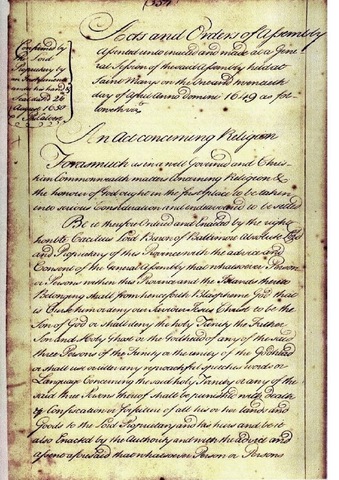 354
Confirmed by
the Lord
Proprietary by
Instrument
under his hand &
Seal dated 26
August 1650
P Philip Calvert
Acts and Orders of Assembly
Assented unto enacted and made at a Gene
ral Session of the said Assembly held at
Saint Marys on the One and twentieth
day of April Anno Domini 1649 as fol
loweth viz
An Act concerning Religion
Forasmuch as in a well Governed and Chris
tian Commonwealth matters Concerning Religion &
the honour of God ought in the first place to be taken
into serious Consideration and endeavoured to be settled
Be it therefore Ordered and Enacted by the right
honble Cæcilius Lord Baron of Baltimore Absolute Lord
and Proprietary of this Province with the advice and
Consent of this General Assembly that whatsoever Person
or Persons within this Province and the Islands thereto
Belonging shall from henceforth Blaspheme God that
is Curse him or deny our Saviour Jesus Christ to be the
Son of God or shall deny the holy Trinity the Father
Son and Holy Ghost or the Godhead of any of the said
three Persons of the Trinity or the unity of the Godhead
or shall use or utter any reproachful speeches words or
Language Concerning the said holy Trinity or any of the
said three Persons thereof shall be punished with death
& Confiscation or forfeiture of all his or her lands and
Goods to the Lord Proprietary and his heirs and be it
also Enacted by the Authority and with the advice and
assent aforesaid that whatsoever Person or Persons